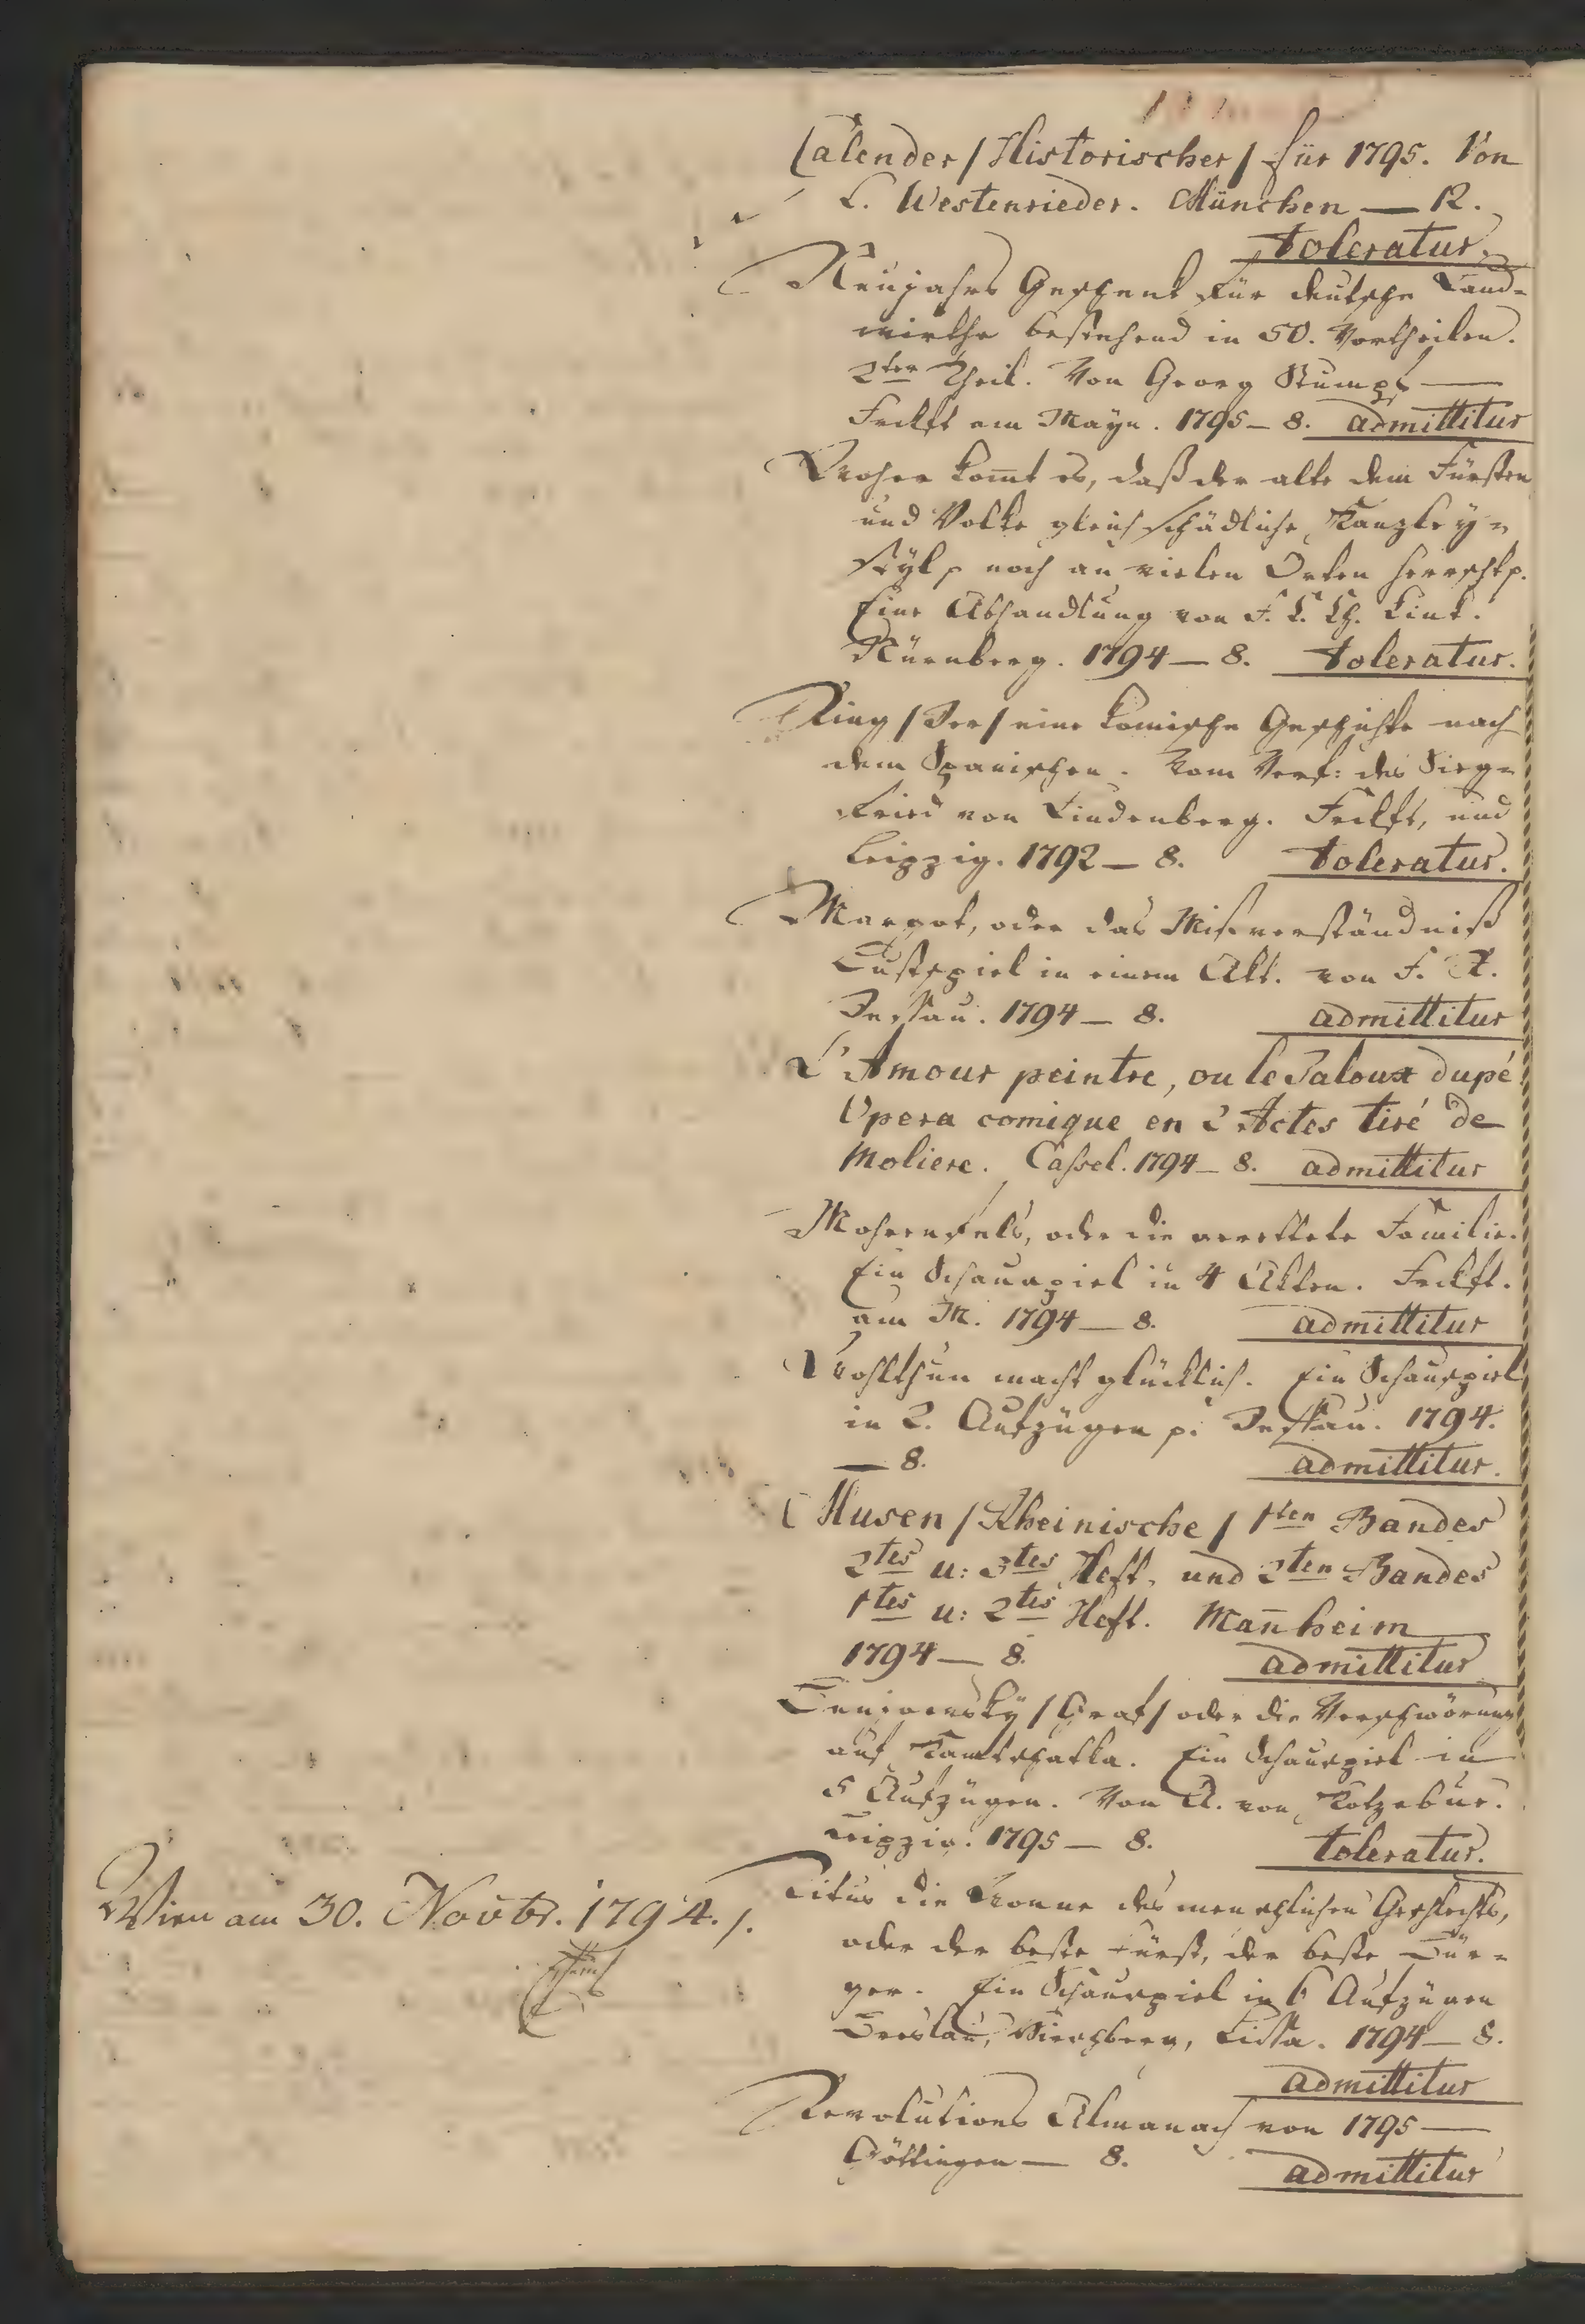 Calender / Historischer / für 1795. Von
L. Westenrieder. München — 12.
toleratur.
Neujahrs Geschenk für deutsche Land=
wirthe bestehend in 50. Vortheilen.
2ter Theil. Von Georg Stumpf —
Frckft am Mayn. 1795 — 8. admittitur
Woher kom̄t es, daß der alte dem Fürsten
und Volke gleich schädliche Kanzley=
styl noch an vielen Orten herrscht.
Eine Abhandlung von F. L. Link.
Nürnberg. 1794 — 8. toleratur.
Ring / Der / eine komische Geschichte nach
dem Spanischen. Vom Verf: des Sieg=
fried von Lindenberg. Frckft, und
Leipzig. 1792 — 8. toleratur.
Margot, oder das Misverständniß
Lustspiel in einem Akt. von F. X.
Dessau. 1794 — 8. admittitur
L'Amour peintre, ou le Jaloux dupé
Opera comique en 2 Actes tiré de
Moliere. Cassel. 1794 — 8. admittitur
Mohrenfels, oder die gerettete Familie.
Ein Schauspiel in 4 Akten. Frckft.
am M. 1794 — 8. admittitur
Wohlthun macht glücklich. Ein Schauspiel
in 2. Aufzügen p. Dessau. 1794.
— 8. admittitur.
Musen / Rheinische / 1ten Bandes
2tes u: 3tes Heft, und 2ten Bandes
1tes u: 2tes Heft. Man̄heim
1794 — 8. admittitur
Benjowsky / Graf / oder die Verschwörung
auf Kamtschatka. Ein Schauspiel in
5 Aufzügen. Von A. von Kotzebue.
Leipzig. 1795 — 8. toleratur.
Titus die Wonne des menschlichen Geschlechts,
oder der beste Fürst, der beste Bür=
ger. Ein Schauspiel in 6 Aufzügen
Breslau, Hirschberg, Lissa. 1794 — 8.
admittitur
Revolutions Almanach von 1795 —
Göttingen — 8. admittitur
Wien am 30. Novbr. 1794.